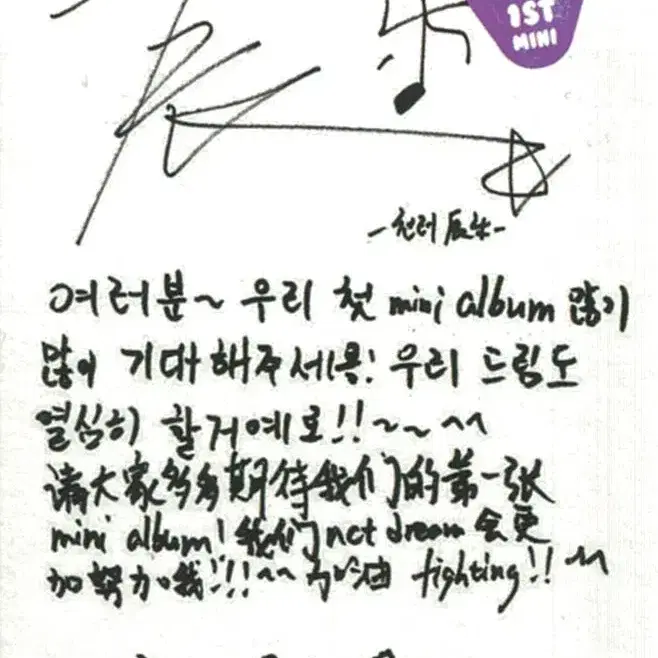 1ST
MINI
-천러 辰乐-
여러분~ 우리 첫 mini album 많이
많이 기대해주세용! 우리 드림도
열심히 할거예요!!~~^^
请大家多多期待我们的第一张
mini album! 我们nct dream会更
加努力哦!!!~~ fighting!! ^^